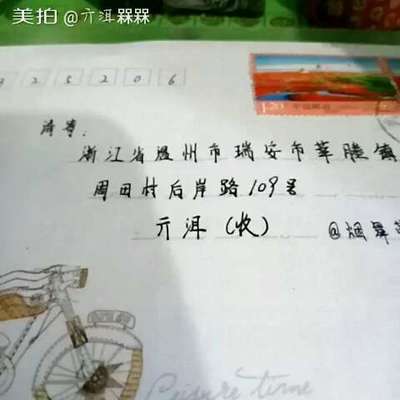 美拍 @亓洱槑槑
325206
1.20 中国邮政
请寄：
浙江省温州市瑞安市莘塍镇
周田村后岸路109号
亓洱（收）
@烟
Leisure time